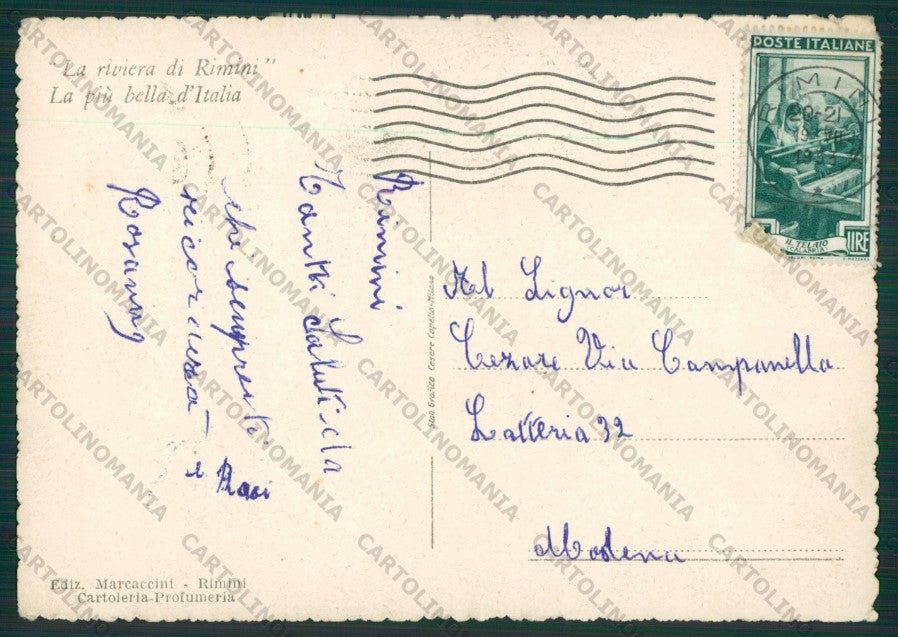 "La riviera di Rimini"
La più bella d'Italia
POSTE ITALIANE
RIMINI
20-21
1953
IL TELAIO
CALABRIA
LIRE
Rimini
Tanti saluti da
chi sempre ti
ricorderà
e Baci
Rosanna
Al Signor
Cezare Via Campanella
Latteria 32
Modena
Stab. Grafico Cesare Capello - Milano
Ediz. Marcaccini - Rimini
Cartoleria-Profumeria
CARTOLINOMANIA